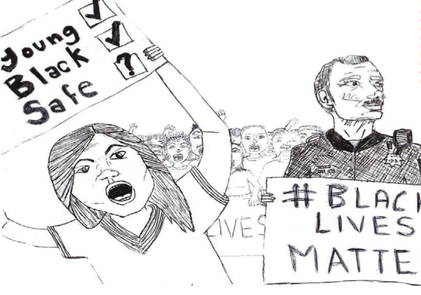 Young ✓
Black ✓
Safe ?
LIVES
#BLAC
LIVES
MATTE